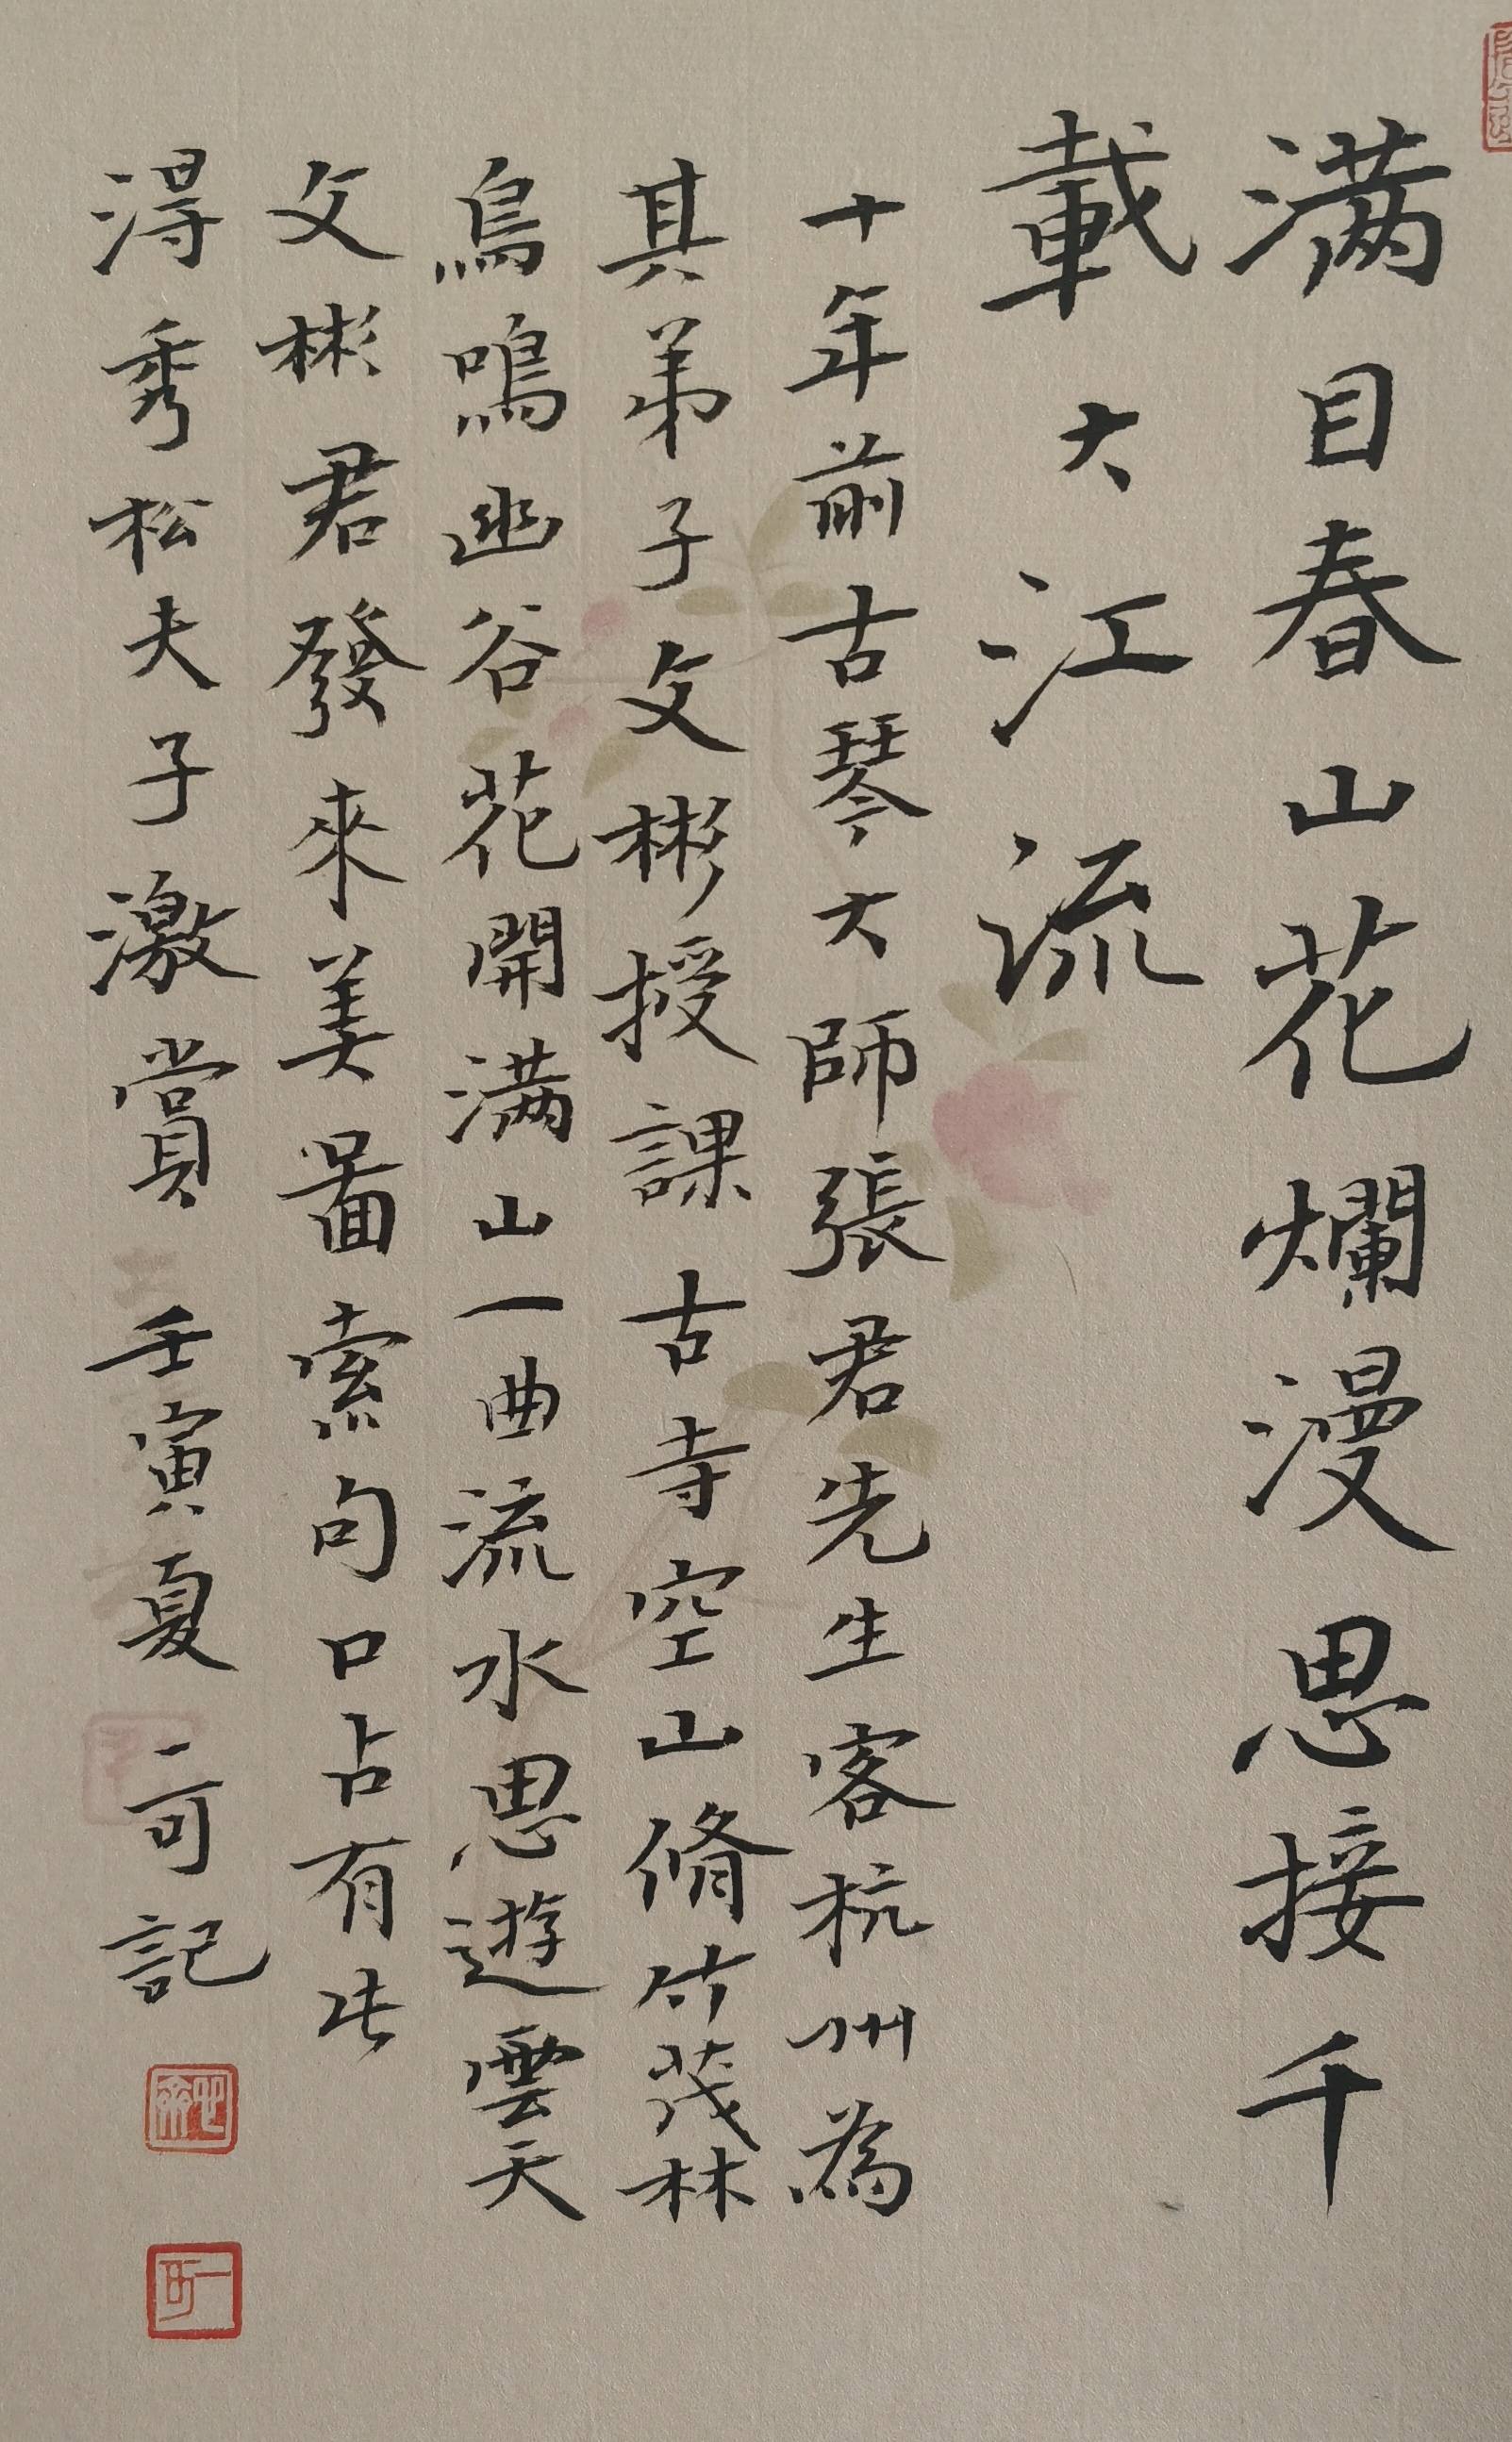 満目春山花爛漫思接千
載大江流
十年前古琴大師張君先生客杭州為
其弟子文彬授課古寺空山脩竹茂林
鳥鳴幽谷花開満山一曲流水思遊雲天
文彬君發來美啚索句口占有此
淂秀松夫子激賞壬寅夏一可記
一可